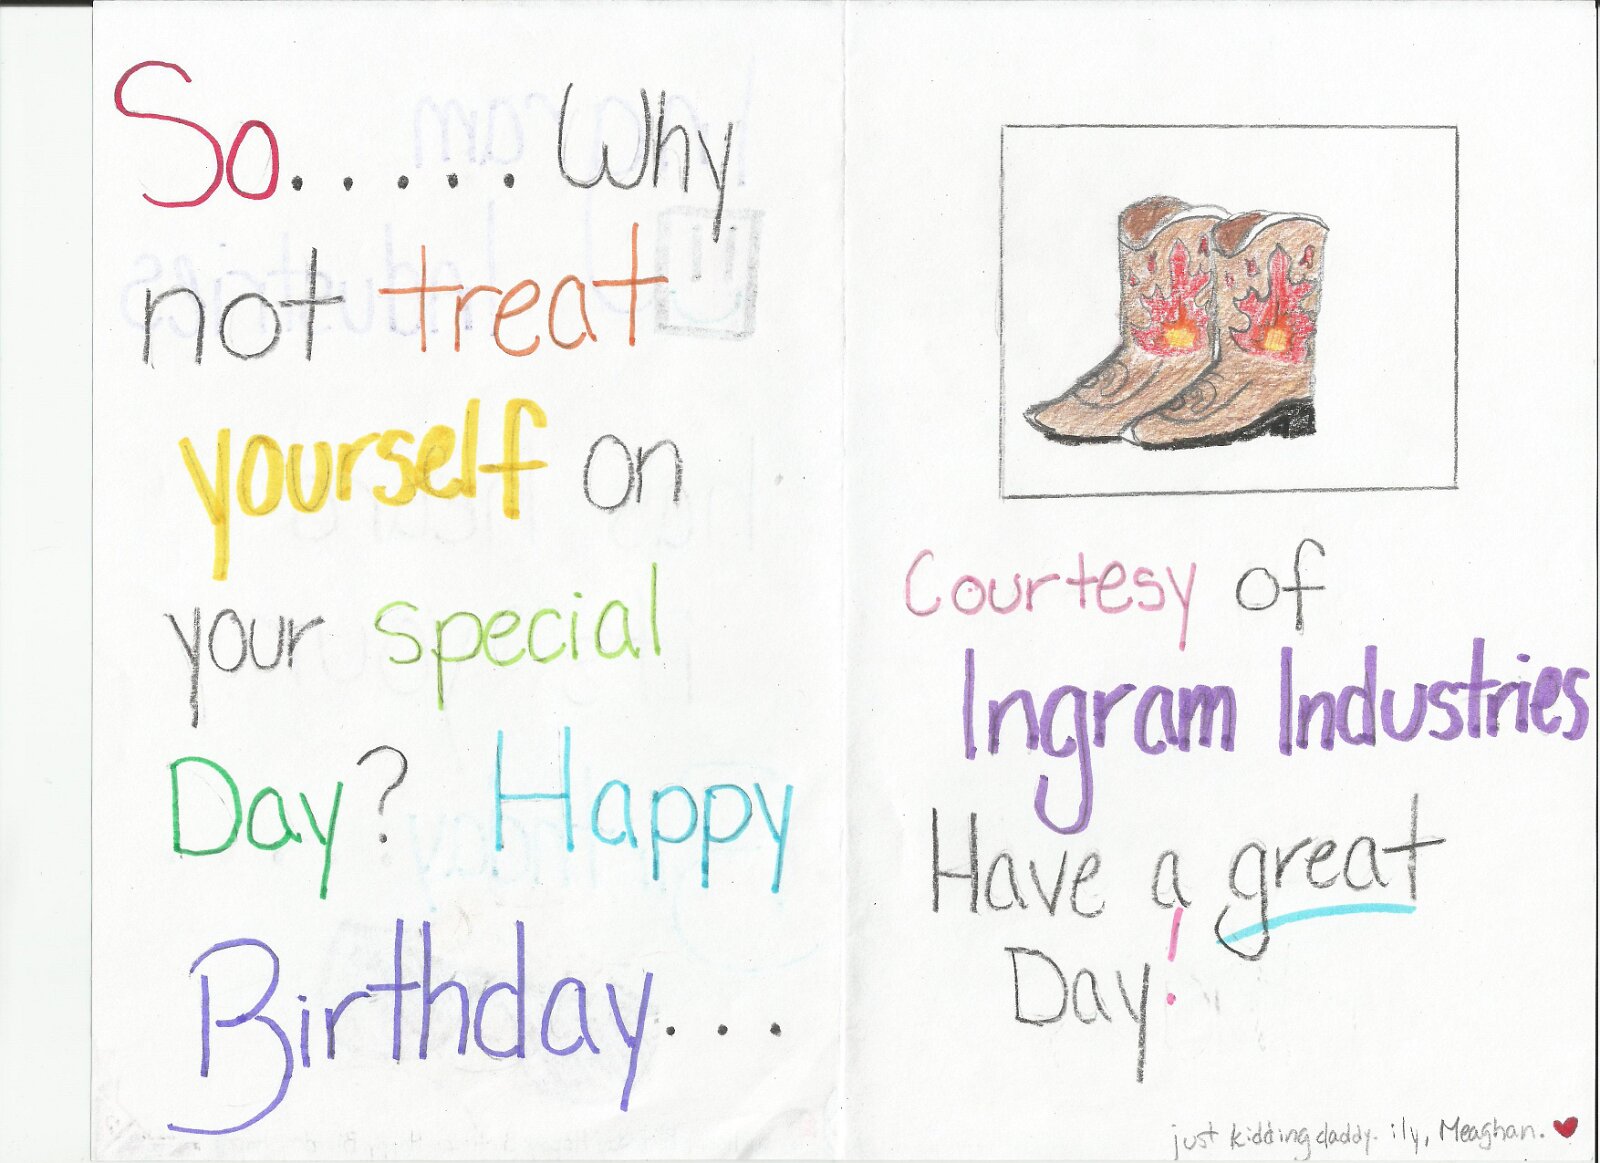 So..... Why
not treat
yourself on
your special
Day? Happy
Birthday...
Courtesy of
Ingram Industries
Have a great
Day!
just kidding daddy. ily, Meaghan.